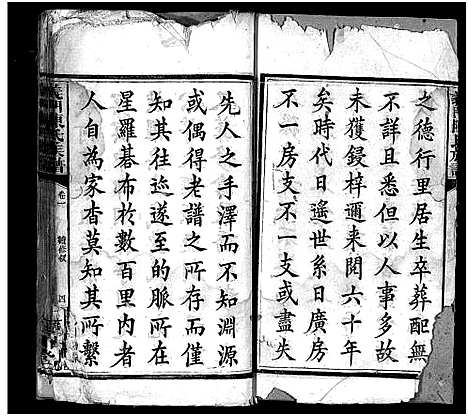 之德行里居生卒葬配無
不詳且悉但以人事多故
未獲鋟梓邇来閱六十年
矣時代日遙世系日廣房
不一房支不一支或盡失
先人之手澤而不知淵源
或偶得老譜之所存而僅
知其徃迹遂至的脈所在
星羅碁布於數百里内者
人自為家杳莫知其所繫
義門陳氏宗譜
卷一
四